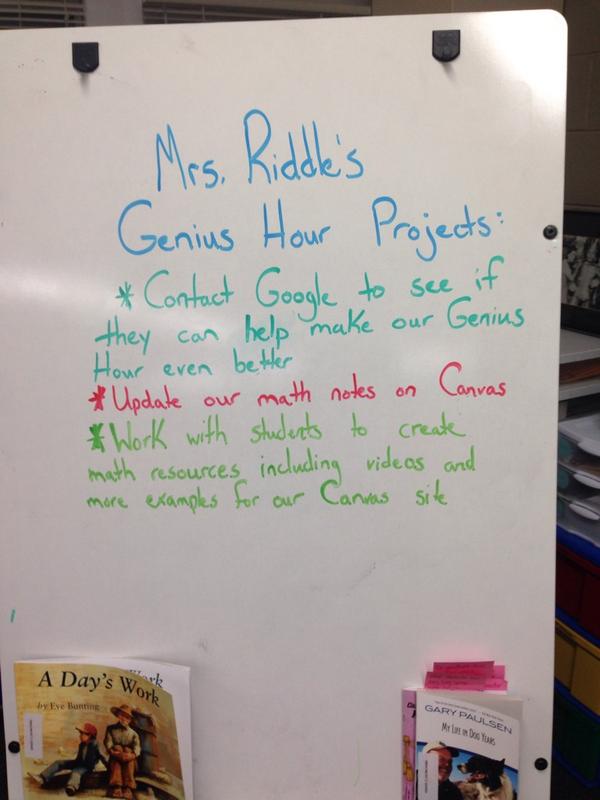 Mrs. Riddle's
Genius Hour Projects:
* Contact Google to see if
they can help make our Genius
Hour even better
* Update our math notes on Canvas
* Work with students to create
math resources including videos and
more examples for our Canvas site
A Day's Work
Work
by Eve Bunting
GARY PAULSEN
MY LIFE IN DOG YEARS